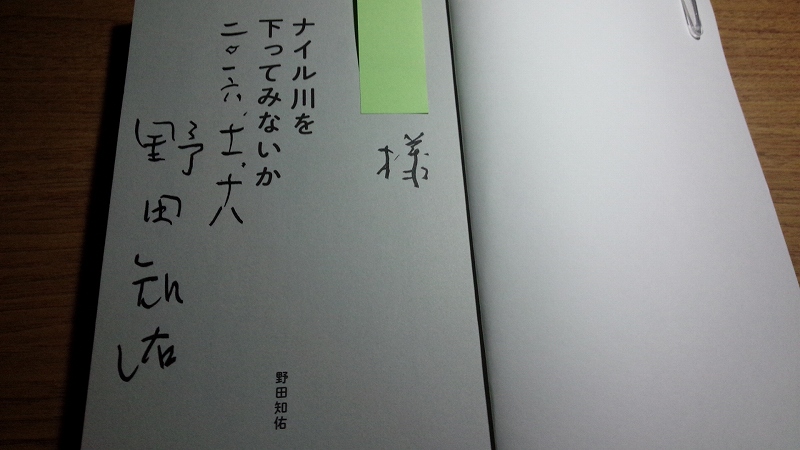 様
ナイル川を
下ってみないか
二〇一六.十一.十八
野田知佑
野田知佑